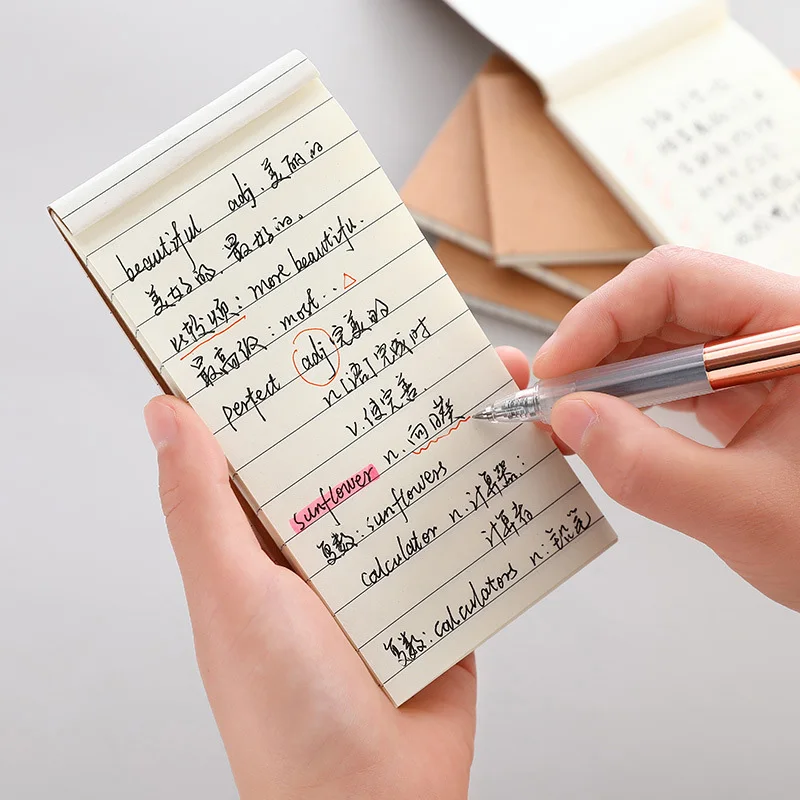 beautiful adj. 美丽的
美好的, 最好的.
比较级: more beautiful.
最高级: most..
perfect adj 完美的
n [语] 完成时
v. 使完善.
sunflower n. 向日葵
复数: sunflowers
calculator n. 计算器:
计算者
复数: calculators n: